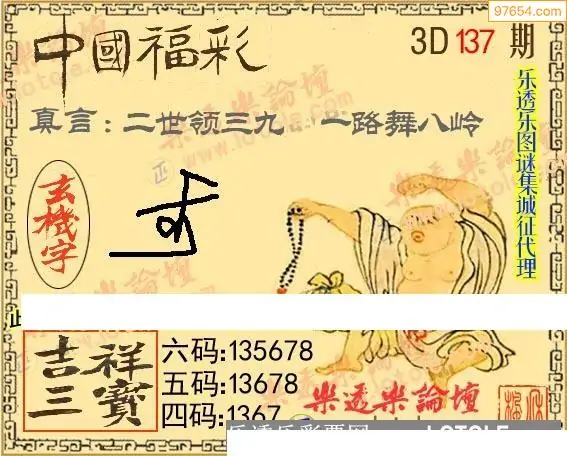 97654.com
中國福彩
3D 137 期
真言:二世领三九 一路舞八岭
乐透乐图谜集城征代理
玄機字
吉祥三寶
六码:135678
五码:13678
四码:1367
樂透樂論壇